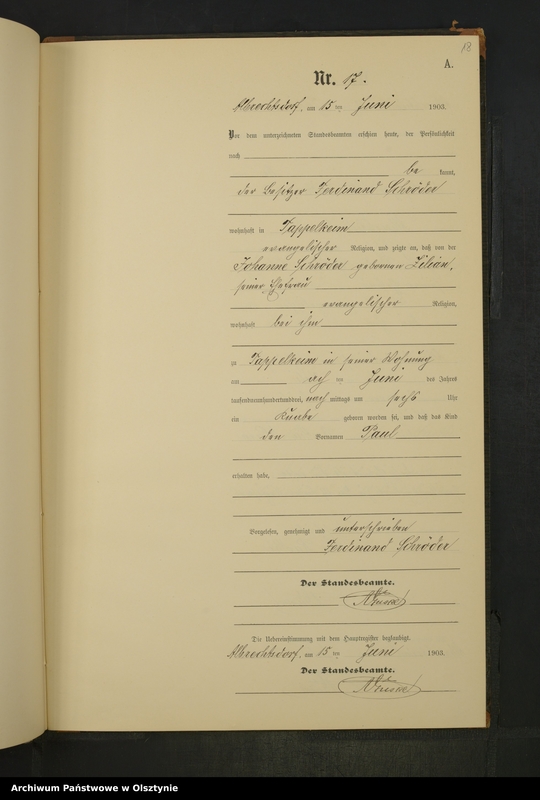 18
A.
Nr. 17.
Albrechtsdorf, am 15 ten Juni 1903.
Vor dem unterzeichneten Standesbeamten erschien heute, der Persönlichkeit
nach
be kannt,
der Besitzer Ferdinand Schröder
wohnhaft in Pappelheim
evangelischer Religion, und zeigte an, daß von der
Johanne Schröder gebornen Zilian,
seiner Ehefrau
evangelischer Religion,
wohnhaft bei ihm
zu Pappelheim in seiner Wohnung
am ten Juni des Jahres
tausendneunhundertunddrei, nach mittags um sechs Uhr
ein Knabe geboren worden sei, und daß das Kind
den Vornamen Paul
erhalten habe,
Vorgelesen, genehmigt und unterschrieben
Ferdinand Schröder
Der Standesbeamte.
Die Uebereinstimmung mit dem Hauptregister beglaubigt.
Albrechtsdorf, am 15 ten Juni 1903.
Der Standesbeamte.
Archiwum Państwowe w Olsztynie